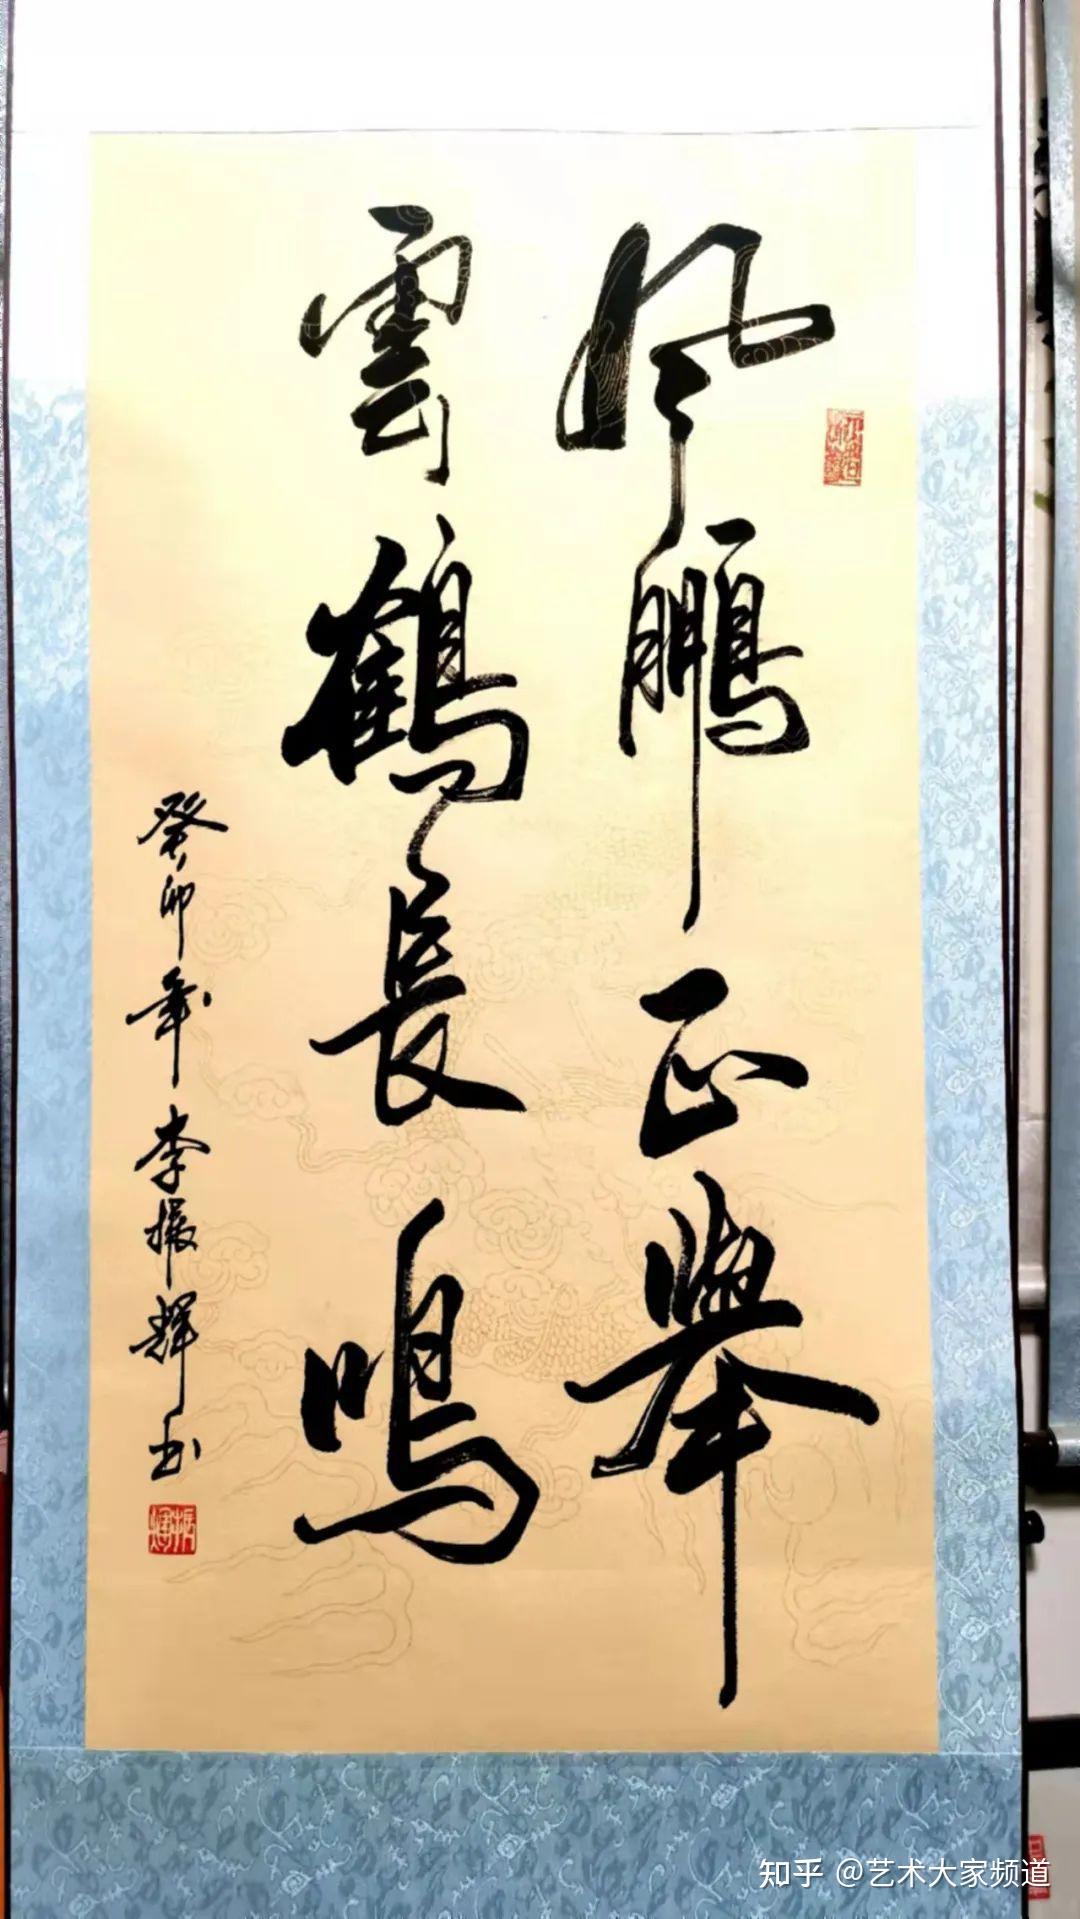 风鹏正舉
雲鶴長鳴
癸卯年李振輝书
振輝
知乎 @艺术大家频道